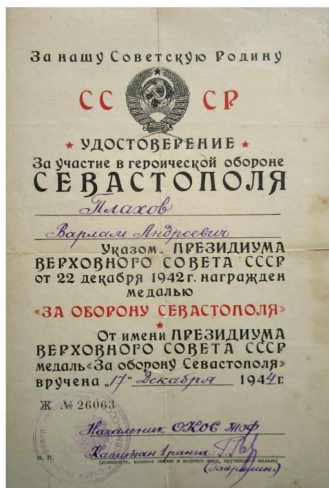 За нашу Советскую Родину
СС СР
УДОСТОВЕРЕНИЕ
За участие в героической обороне
СЕВАСТОПОЛЯ
Плахов
Варлам Андреевич
Указом ПРЕЗИДИУМА
ВЕРХОВНОГО СОВЕТА СССР
от 22 декабря 1942 г. награжден
медалью
«ЗА ОБОРОНУ СЕВАСТОПОЛЯ»
От имени ПРЕЗИДИУМА
ВЕРХОВНОГО СОВЕТА СССР
медаль «За оборону Севастополя»
вручена „17" Декабря 1944 г.
Ж № 26063
Начальник ОКОС ТОФ
Капитан 1 ранга
М. П.